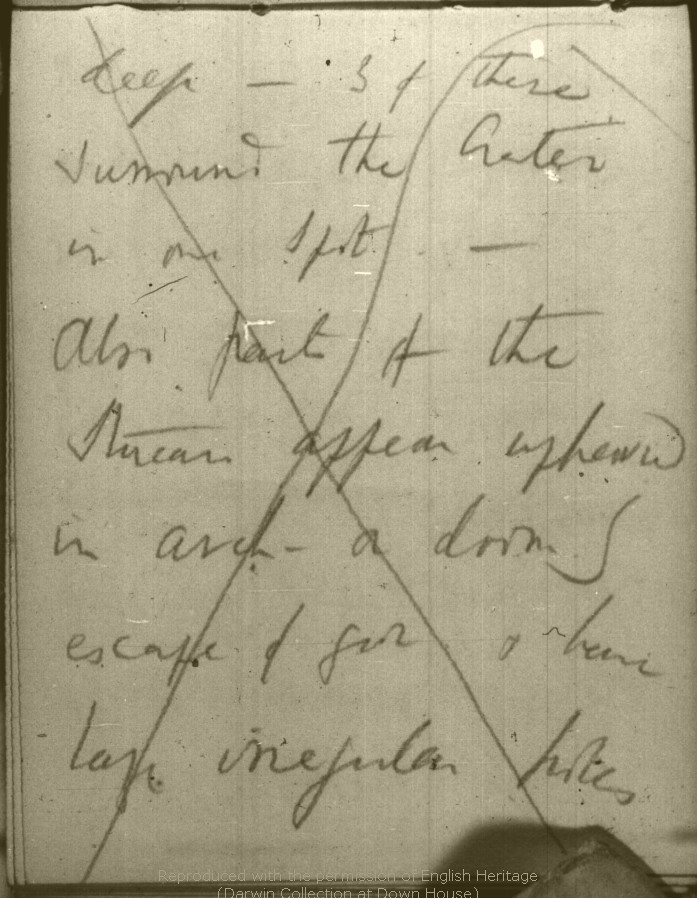 deep — 3 of these
surround the Crater
in one spot. —
Also parts of the
Stream appear upheaved
in arch — or doom
escape of gaz & have
large irregular holes
Reproduced with the permission of English Heritage
(Darwin Collection at Down House)